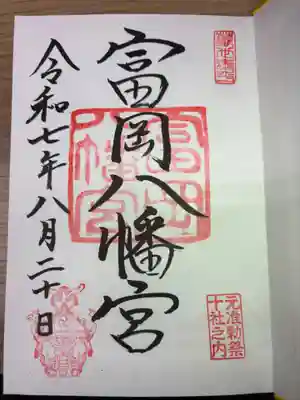 富岡八幡宮
令和七年八月二十日
富岡八幡宮
元准勅祭
十社之内